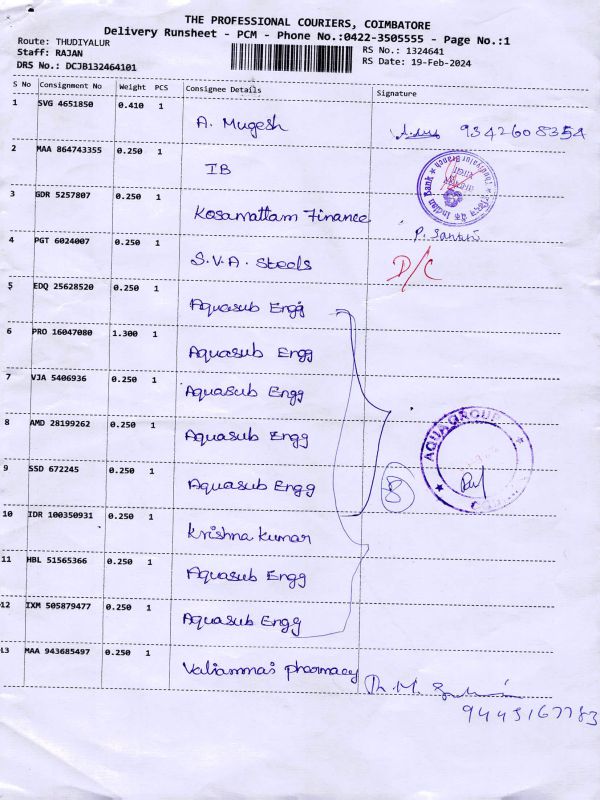 THE PROFESSIONAL COURIERS, COIMBATORE
Delivery Runsheet - PCM - Phone No.:0422-3505555 - Page No.:1
Route: THUDIYALUR
Staff: RAJAN
DRS No.: DCJB132464101
RS No.: 1324641
RS Date: 19-Feb-2024
S No Consignment No Weight PCS Consignee Details Signature
1 SVG 4651850 0.410 1 A. Mugesh 9342608354
2 MAA 864743355 0.250 1 IB
Indian Bank
Thudiyalur Branch
3 GDR 5257807 0.250 1 Kosamattam Finance
P. Santhi
4 PGT 6024007 0.250 1 S.V.A. Steels D/C
5 EDQ 25628520 0.250 1 Aquasub Engg
6 PRO 16047080 1.300 1 Aquasub Engg
7 VJA 5406936 0.250 1 Aquasub Engg
8 AMD 28199262 0.250 1 Aquasub Engg
AQUAGROUP
9 SSD 672245 0.250 1 Aquasub Engg 8
10 IDR 100350931 0.250 1 Krishna Kumar
11 HBL 51565366 0.250 1 Aquasub Engg
12 IXM 505879477 0.250 1 Aquasub Engg
13 MAA 943685497 0.250 1 Valiammai pharmacy
9445167783